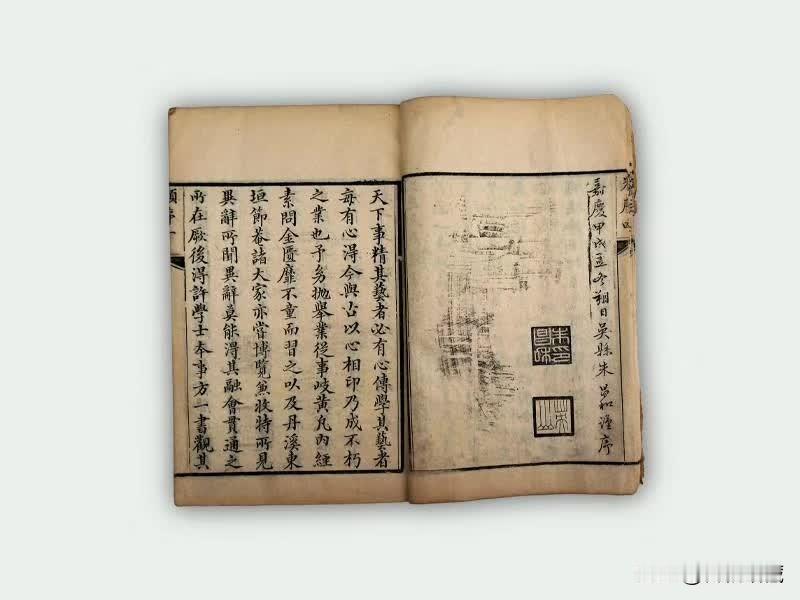 嘉慶甲戌孟冬朔日吳縣朱昌和謹序
天下事精其藝者必有心傳學其藝者
每有心得今與古以心相印乃成不朽
之業也予幼拋舉業從事岐黃凡內經
素問金匱靡不童而習之以及丹溪東
垣節菴諸大家亦嘗博覽兼收特所見
異辭所聞異辭莫能得其融會貫通之
所在厥後得許學士本事方一書觀其